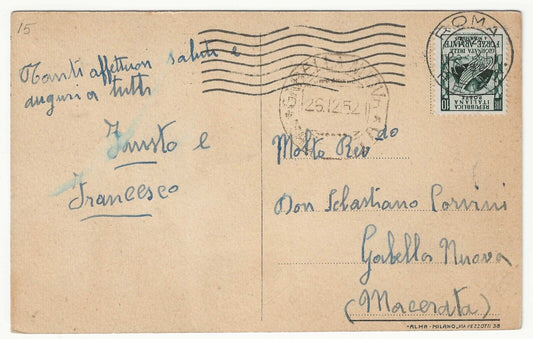 15
Tanti affettuosi saluti e
auguri a tutti
Fausto e
Francesco
ROMA
GIORNATA DELLE
FORZE ARMATE
REPUBBLICA
ITALIANA
10
26.12.52
Molto Rev.do
Don Sebastiano Corvini
Gabella Nuova
(Macerata)
-ALMA - MILANO, VIA PEZZOTTI 38